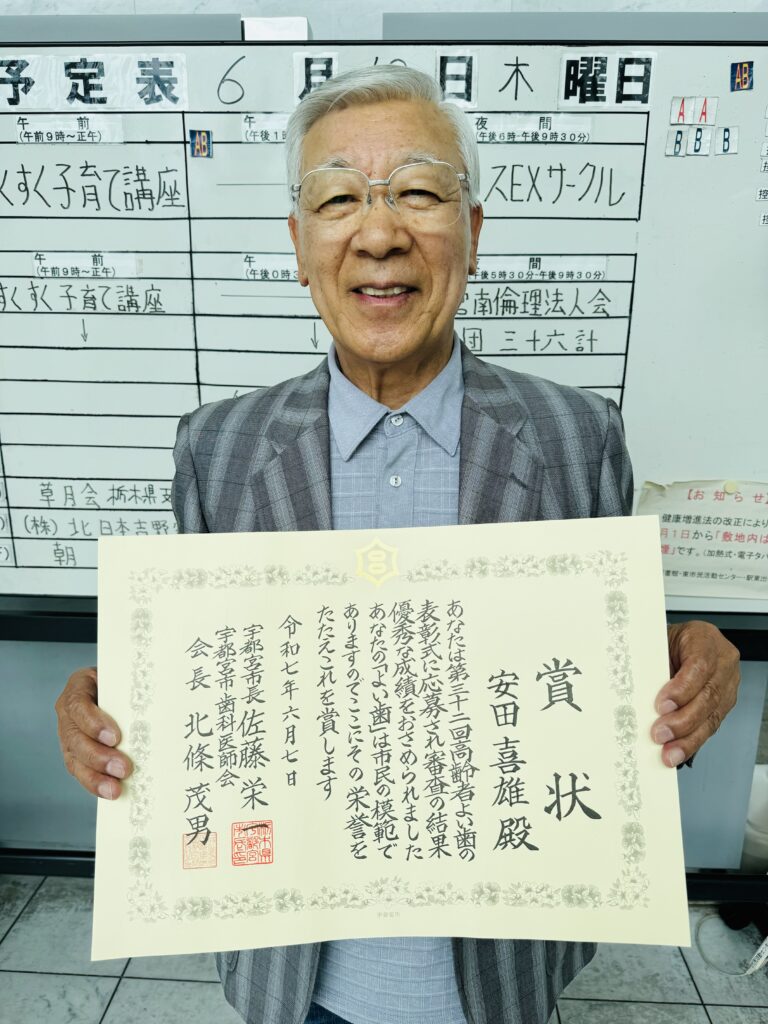 予定表 6月 日 木 曜日
午前
(午前9時~正午)
すく子育て講座
午前
(午前9時~正午)
すくすく子育て講座
↓
草月会 栃木県支
(株)北日本吉野
朝
午
(午後1
AB
(午後0時3
↓
夜間
午後6時-午後9時30分)
スEXサークル
間
午後5時30分~午後9時30分)
宮南倫理法人会
団 三十六計
AB
A A
B B B
【お知らせ】
健康増進法の改正により
月1日から「敷地内は
煙」です。(加熱式・電子タバ
東市民活動センター
賞状
安田喜雄殿
あなたは第三十二回高齢者よい歯の
表彰式に応募され審査の結果
優秀な成績をおさめられました
あなたの「よい歯」は市民の模範で
ありますのでここにその栄誉を
たたえこれを賞します
令和七年六月七日
宇都宮市長 佐藤栄一
宇都宮市歯科医師会
会長 北條茂男